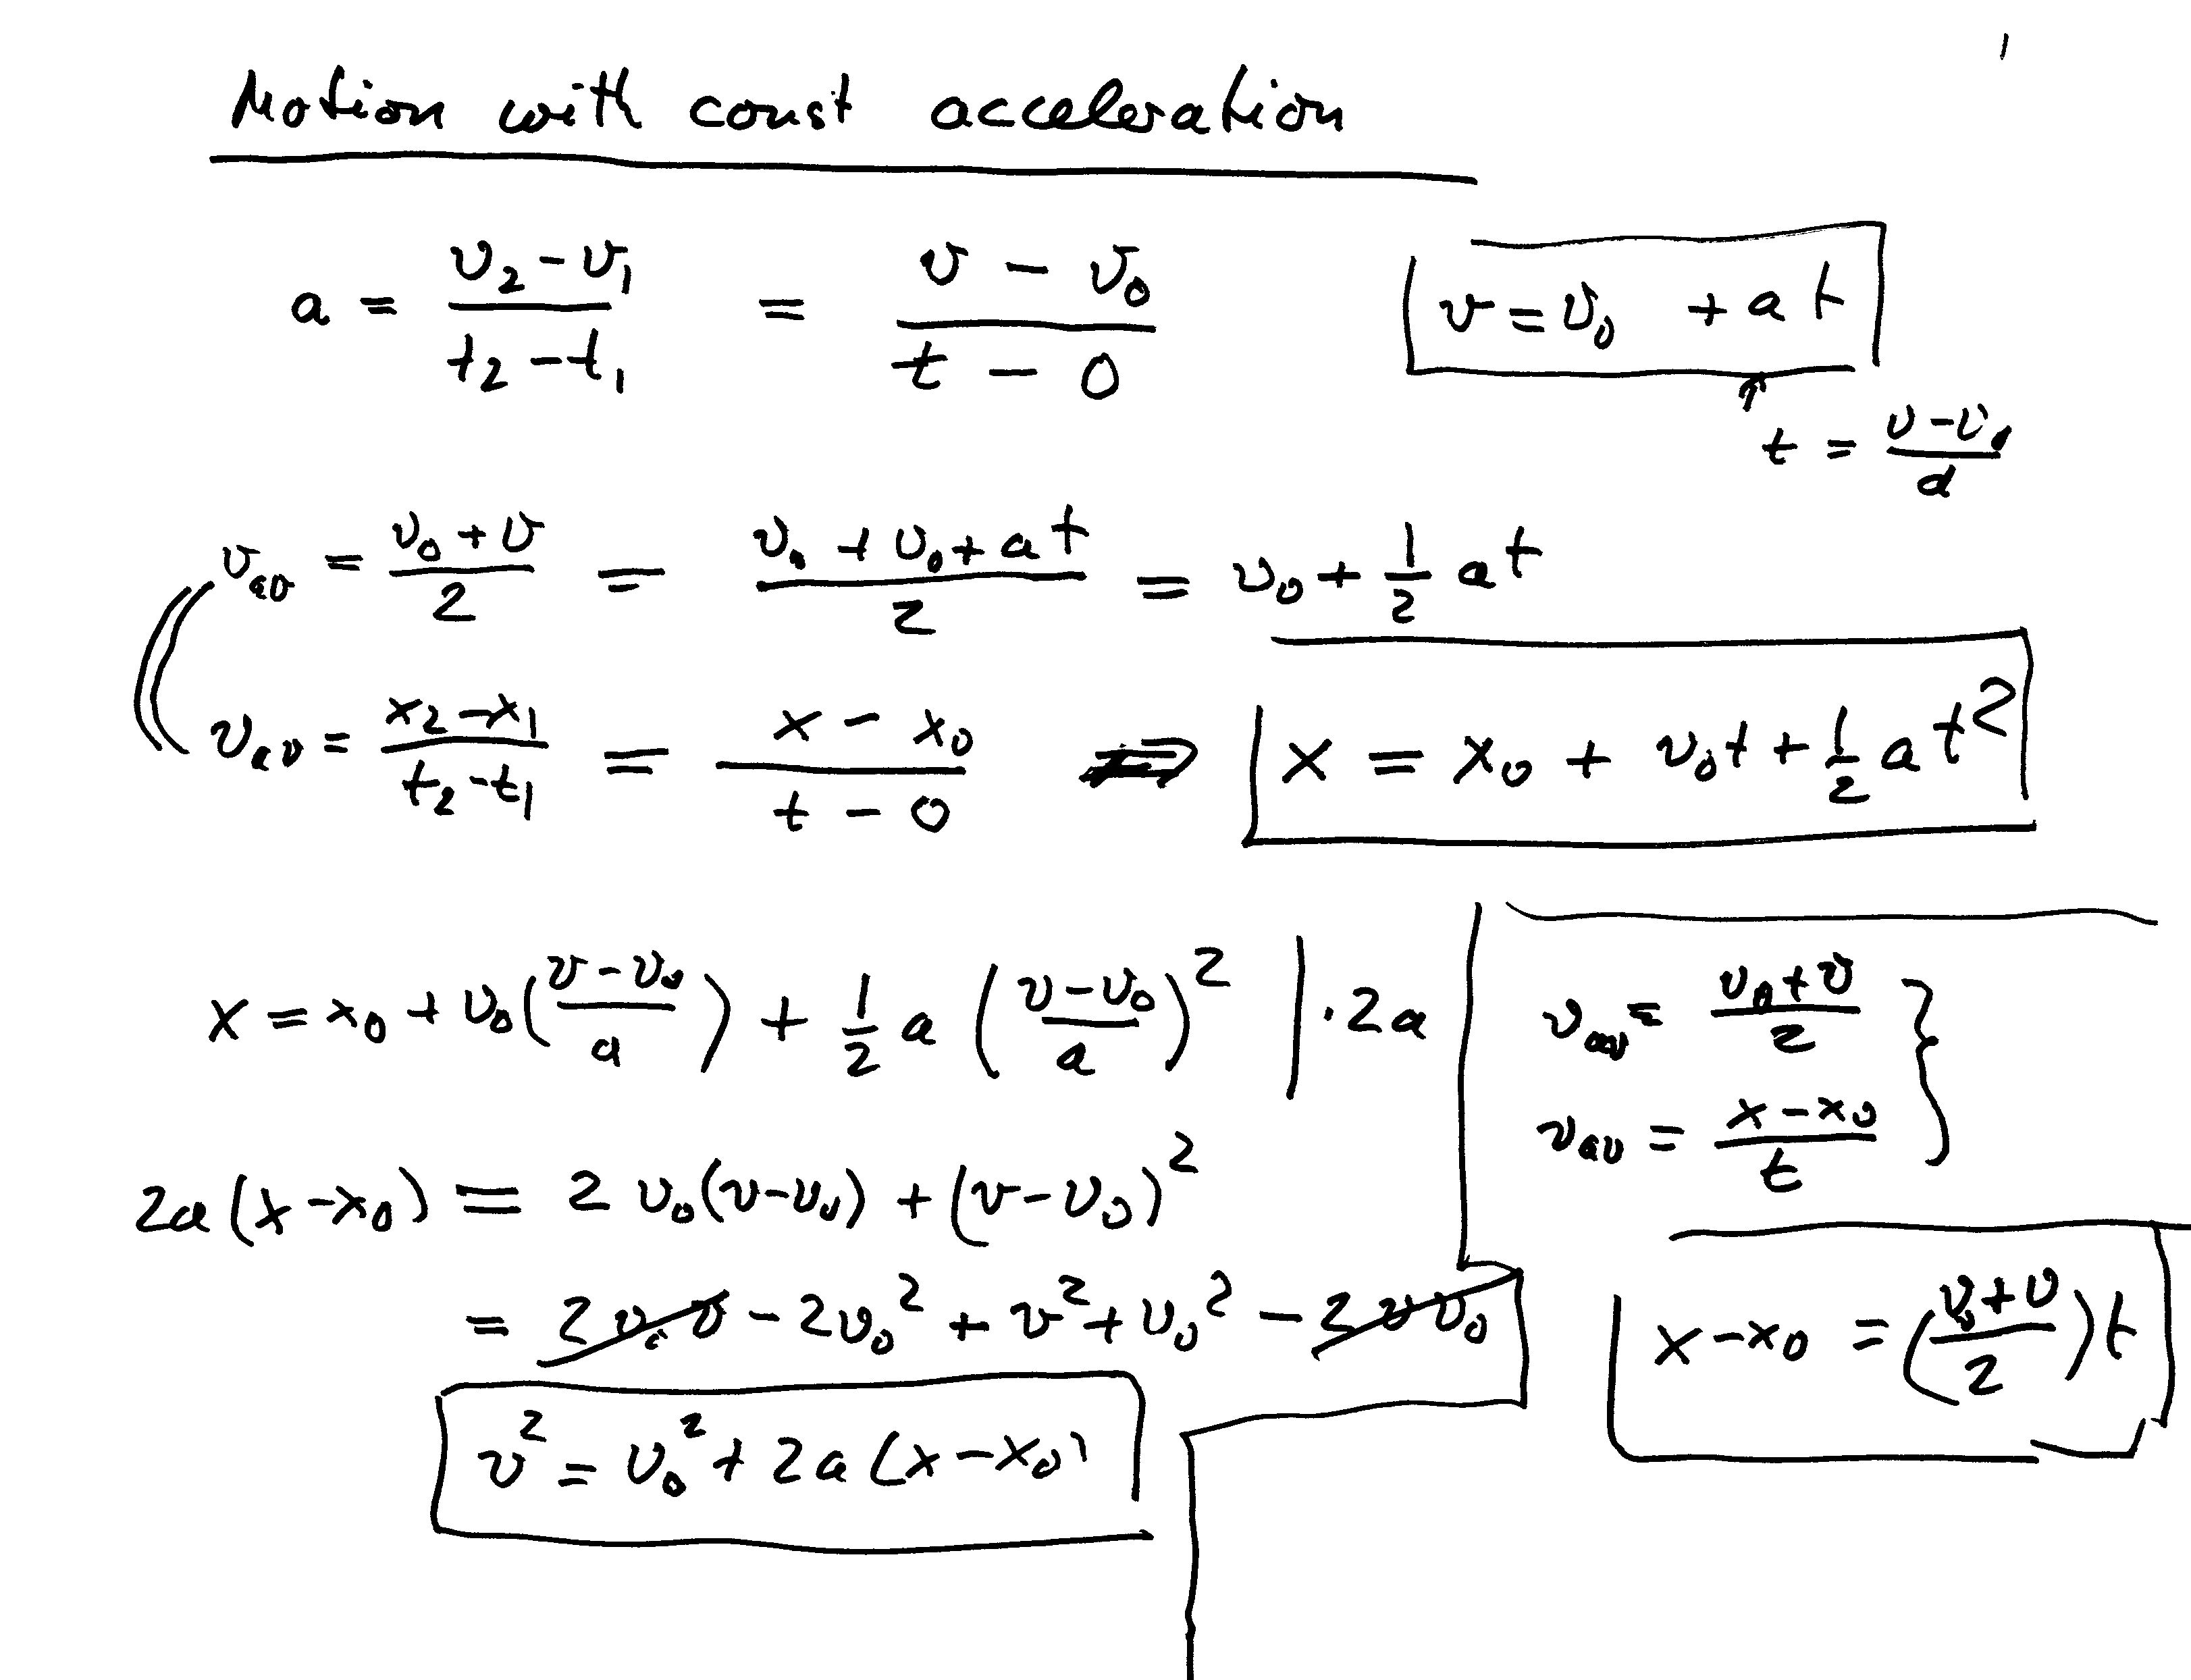 1
Motion with const acceleration
a = (v₂ - v₁)/(t₂ - t₁) = (v - v₀)/(t - 0)
v = v₀ + at
t = (v - v₀)/a
v_av = (v₀ + v)/2 = (v₀ + v₀ + at)/2 = v₀ + 1/2 at
v_av = (x₂ - x₁)/(t₂ - t₁) = (x - x₀)/(t - 0) ⇒ x = x₀ + v₀t + 1/2 at²
x = x₀ + v₀((v - v₀)/a) + 1/2 a ((v - v₀)/a)² | · 2a
2a(x - x₀) = 2v₀(v - v₀) + (v - v₀)²
= 2v₀v - 2v₀² + v² + v₀² - 2vv₀
v² = v₀² + 2a(x - x₀)
v_av = (v₀ + v)/2 }
v_av = (x - x₀)/t
x - x₀ = ((v₀ + v)/2)t